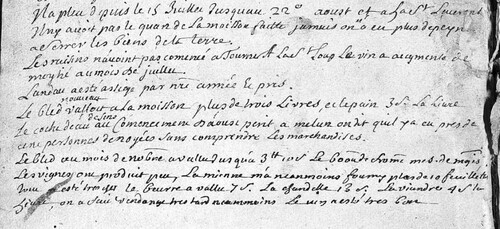 Na pleu depuis le 15 Juillet Jusquau 22e aoust et a la St Laurent
Il ny avoit pas le quar de la moisson faitte jamais on a eu plus de peyne
a serrer les biens de la terre.
Les raisins navoint pas comencé a tourner A la St Loup Le vin a augmenté de
moytié au mois de juillet
Landau a esté assiegé par nre armée et pris.
Le bled nouveau valloit a la moisson plus de trois Livres, et le pain 3s. La Livre
Le coche deau de Sens au Comencement daoust perit a melun on dit quil y a eu pres de
cinq personnes de noyées sans comprendre Les marchandises.
Le Bled au mois de nobre a valu Jusqua 3tt 10s Le
Les vignes ont produit peu La mienne ma neanmoins fourny plus de 10 feuillettes
tout a esté tres cher le beurre a vallu 7s. La chandelle 12s. La viande 4s la
Livre on a fini vendange tres tard neanmoins Le vin a esté tres bon